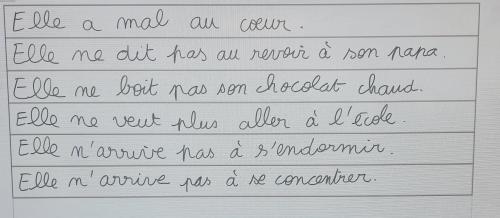 Elle a mal au cœur.
Elle ne dit pas au revoir à son papa.
Elle ne boit pas son chocolat chaud.
Elle ne veut plus aller à l'école.
Elle n'arrive pas à s'endormir.
Elle n'arrive pas à se concentrer.